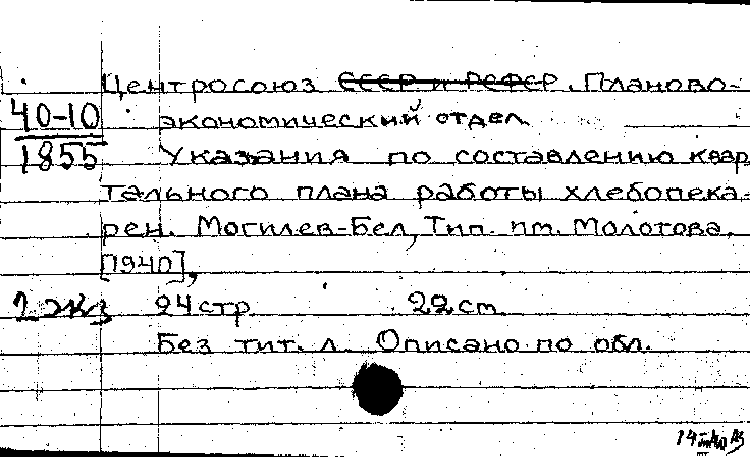 Центросоюз СССР и РСФСР. Планово-
40-10
1855
экономический отдел
Указания по составлению квар
тального плана работы хлебопека-
рен. Могилев-Бел, Тип. им. Молотова,
[1940],
2 экз 24 стр. 22 см.
Без тит. л. Описано по обл.